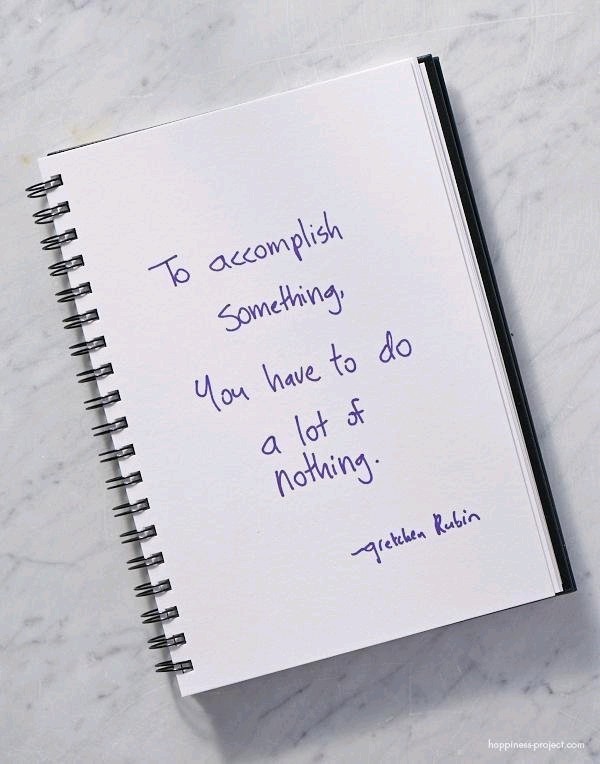 To accomplish
Something,
You have to do
a lot of
nothing.
~gretchen Rubin
happiness-project.com